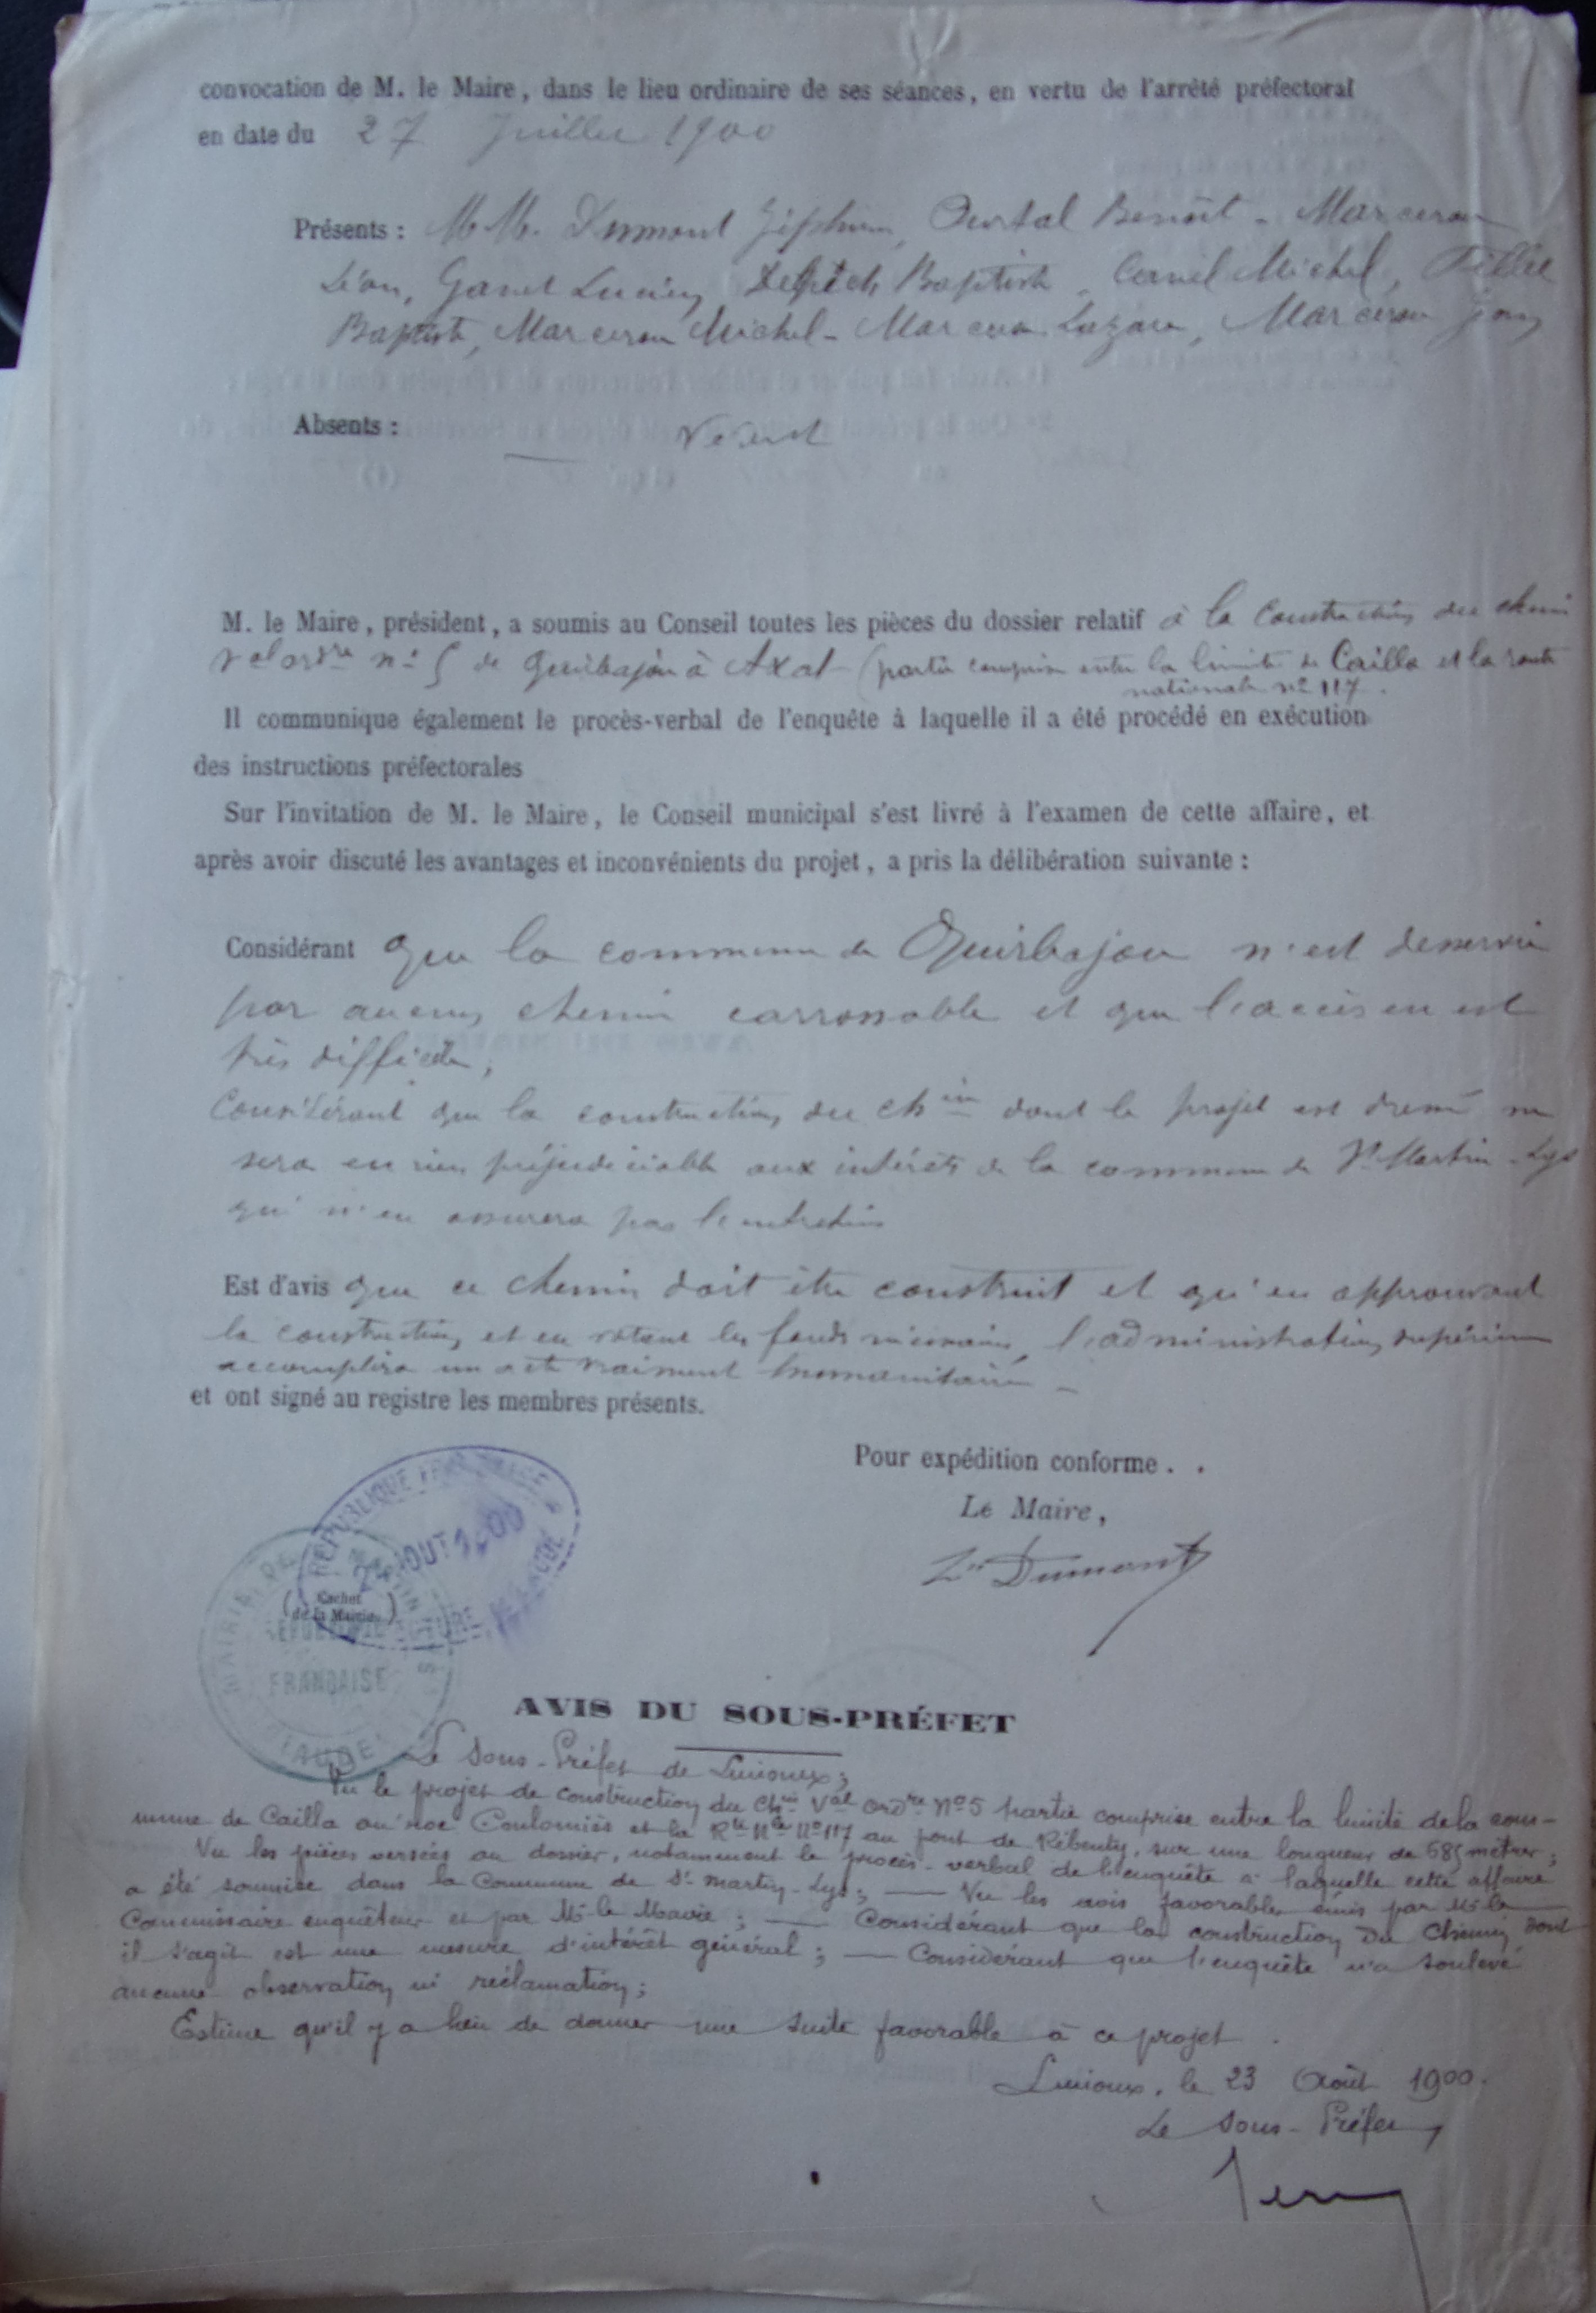 convocation de M. le Maire, dans le lieu ordinaire de ses séances, en vertu de l'arrêté préfectoral
en date du 27 Juillet 1900
Présents : MM. Dumont Zéphirin, Benoît - Marceron
Léon, Lucien, Baptiste, Michel,
Baptiste, Marceron Michel - Marceron Lazare, Marceron
Absents :
M. le Maire, président, a soumis au Conseil toutes les pièces du dossier relatif à la Construction du chemin
v^al ord^re n° 5 de Quirbajou à Axat (partie comprise entre la limite de Cailla et la route
nationale n° 117.
Il communique également le procès-verbal de l'enquête à laquelle il a été procédé en exécution
des instructions préfectorales
Sur l'invitation de M. le Maire, le Conseil municipal s'est livré à l'examen de cette affaire, et
après avoir discuté les avantages et inconvénients du projet, a pris la délibération suivante :
Considérant que la commune de Quirbajou n'est desservie
par aucun chemin carrossable et que l'accès en est
très difficile,
Considérant que la construction du ch^in dont le projet est dressé ne
sera en rien préjudiciable aux intérêts de la commune de S^t Martin-Lys
qui n'en assurera pas l'entretien
Est d'avis que ce chemin doit être construit et qu'en approuvant
la construction et en votant les fonds nécessaires, l'administration supérieure
accomplira un acte vraiment humanitaire -
et ont signé au registre les membres présents.
Pour expédition conforme. .
Le Maire,
Z^in Dumont
RÉPUBLIQUE FRANÇAISE
AOUT 1900
(Cachet
de la Mairie)
MAIRIE DE S^T MARTIN LYS
RÉPUBLIQUE
FRANÇAISE
(AUDE)
AVIS DU SOUS-PRÉFET
Le Sous-Préfet de Limoux;
Vu le projet de construction du Ch^in V^al Ord^re N° 5 partie comprise entre la limite de la com-
mune de Cailla au roc Coulomiès et la R^te N^le N° 117 au pont de Rébenty, sur une longueur de 685 mètres;
Vu les pièces versées au dossier, notamment le procès-verbal de l'enquête à laquelle cette affaire
a été soumise dans la Commune de S^t Martin-Lys; — Vu les avis favorables émis par M^r le
Commissaire enquêteur et par M^r le Maire; — Considérant que la construction du Chemin dont
il s'agit est une mesure d'intérêt général; — Considérant que l'enquête n'a soulevé
aucune observation ni réclamation;
Estime qu'il y a lieu de donner une suite favorable à ce projet.
Limoux, le 23 Août 1900.
Le Sous-Préfet,